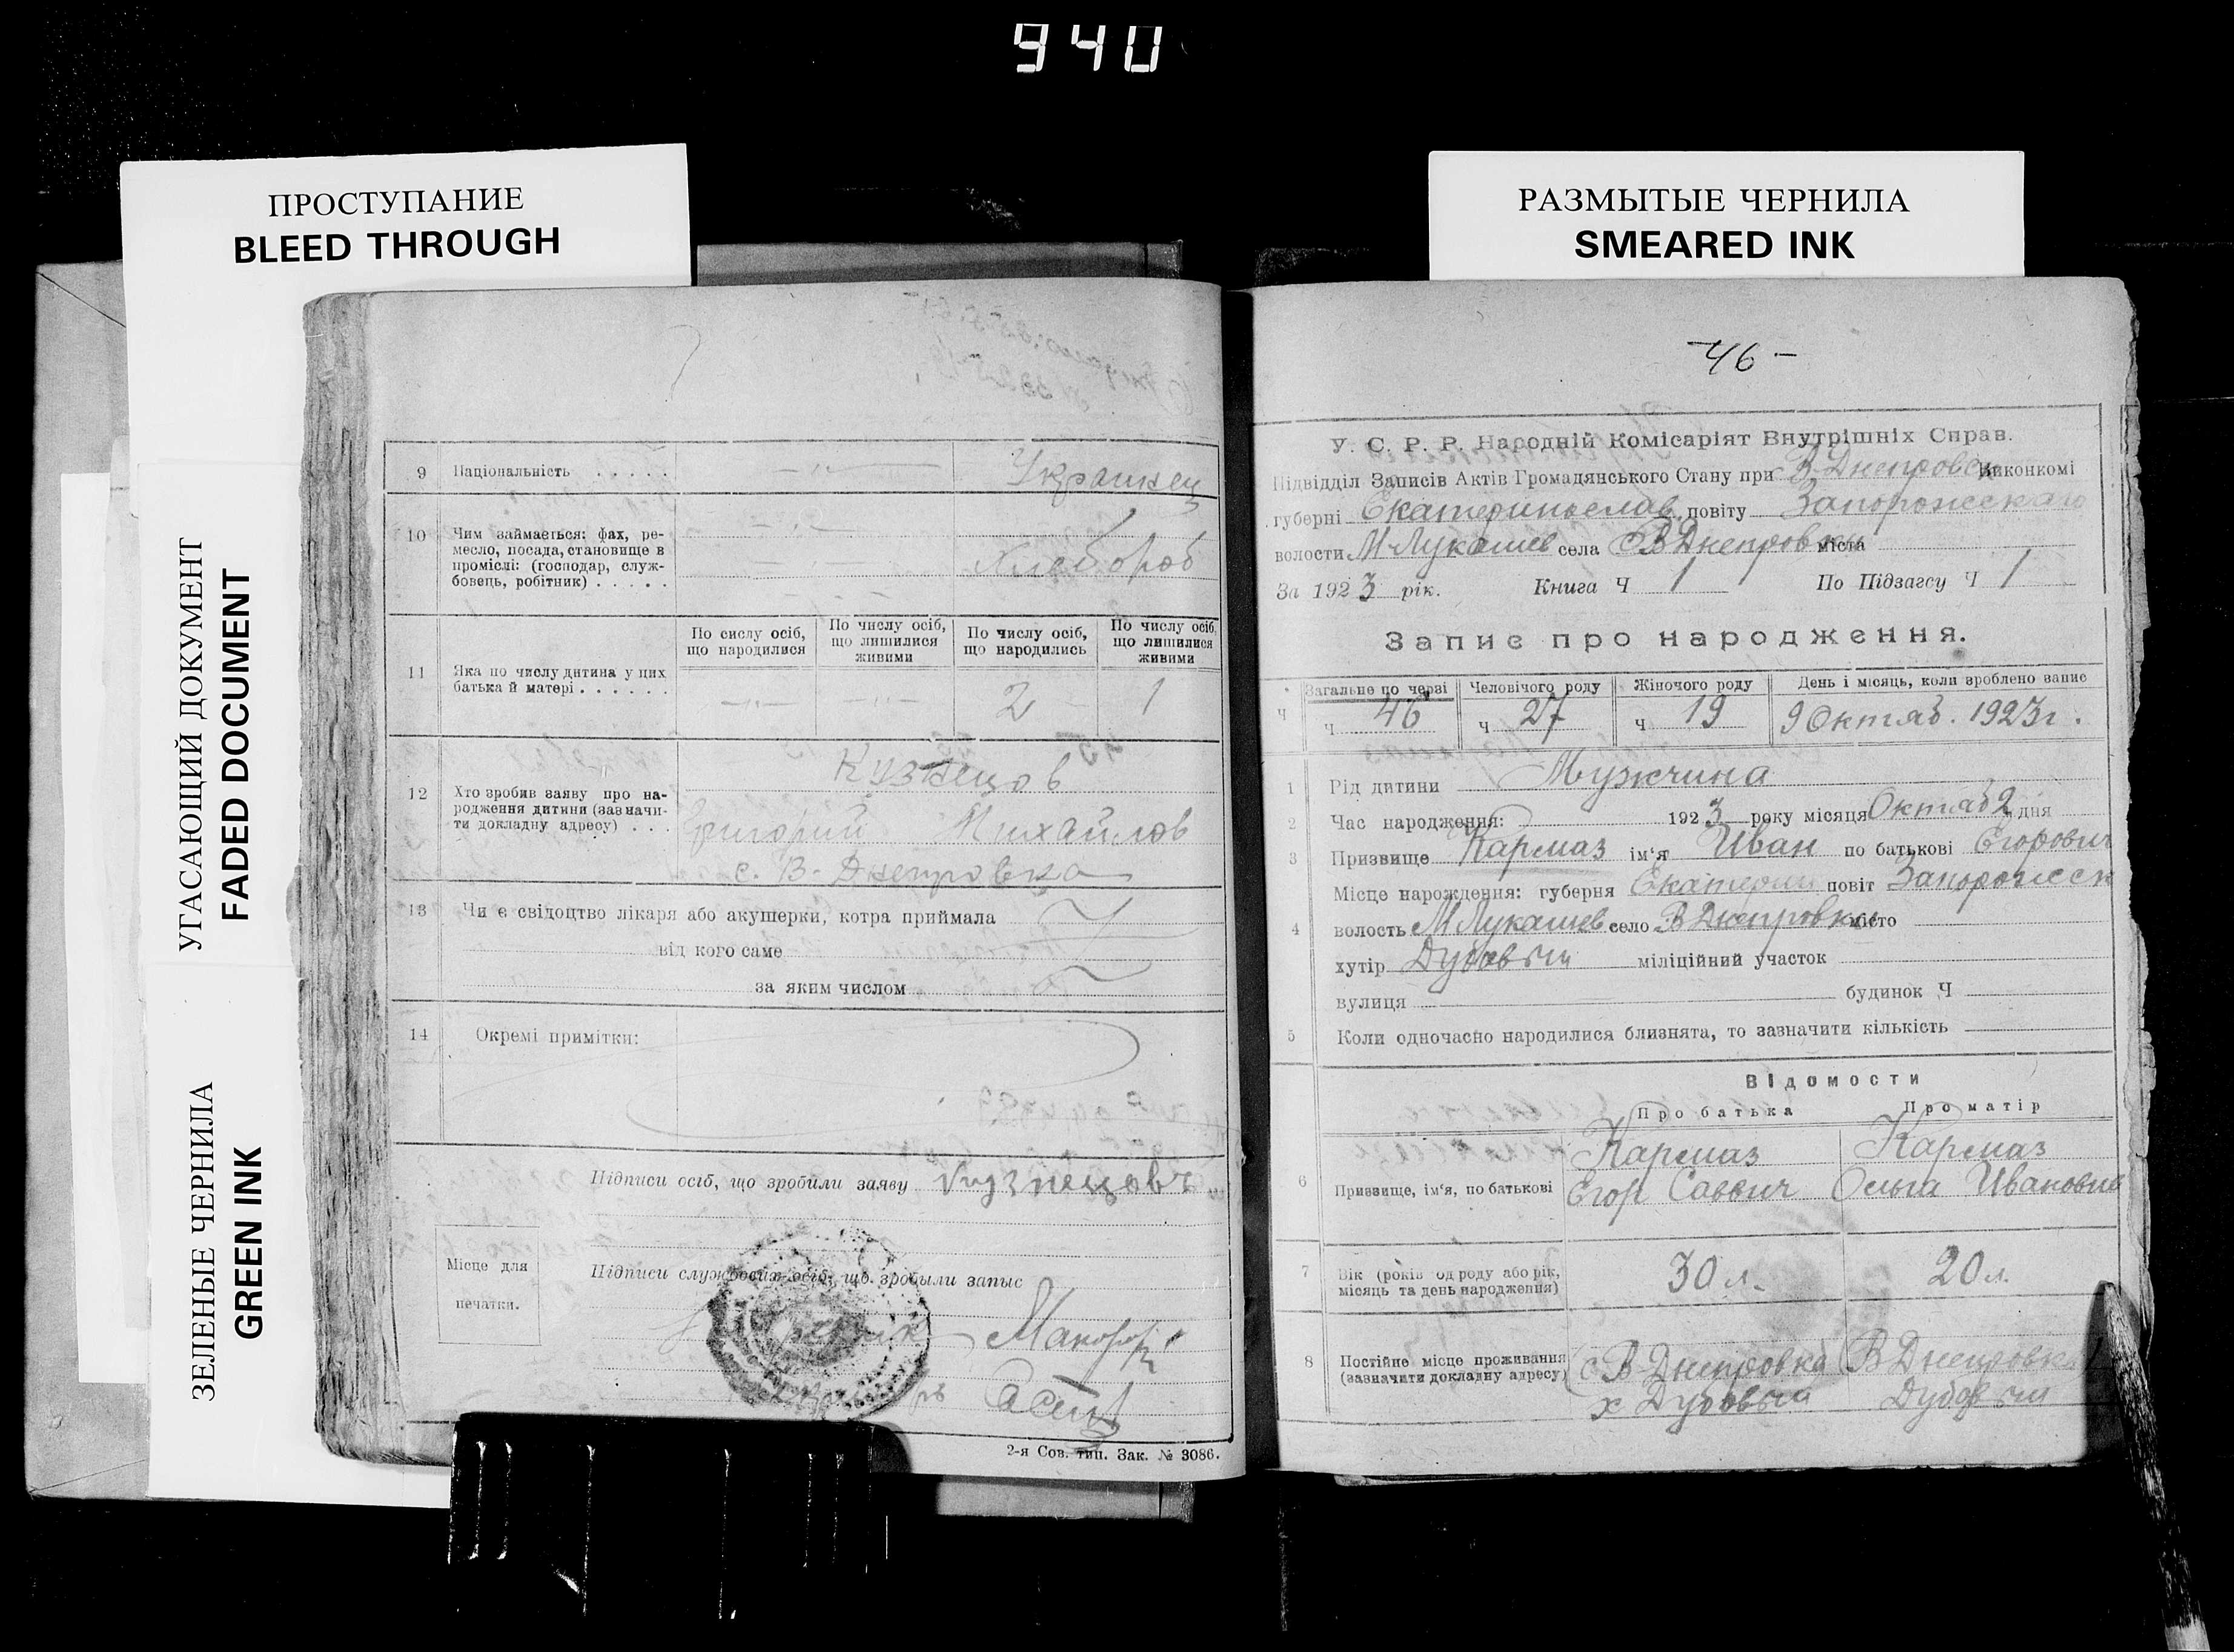 940
ПРОСТУПАНИЕ
BLEED THROUGH
УГАСАЮЩИЙ ДОКУМЕНТ
FADED DOCUMENT
ЗЕЛЕНЫЕ ЧЕРНИЛА
GREEN INK
9 Національність . . . . . —"— Украинец
10 Чим займається: фах, ре-
месло, посада, становище в
проміслі: (господар, служ-
бовець, робітник) . . . . .
Хлебороб
11 Яка по числу дитина у цих
батька й матері . . . . . .
По сислу осіб, що народилися
По числу осіб, що лишилися живими
По числу осіб, що народились
По числу осіб, що лишилися живими
—"— —"— 2 1
12 Хто зробив заяву про на-
родження дитини (зазначи-
ти докладну адресу) . . .
Кузнецов
Григорий Михайлов
с. В. Днепровка
13 Чи є свідоцтво лікаря або акушерки, котра приймала
від кого саме
за яким числом
14 Окремі примітки:
Підписи осіб, що зробили заяву Кузнецовъ
Місце для
печатки.
Підписи службосих осіб, що зробыли запыс
2-я Сов. тип. Зак. № 3086.
РАЗМЫТЫЕ ЧЕРНИЛА
SMEARED INK
-46-
У. С. Р. Р. Народній Комісаріят Внутрішніх Справ.
Підвідділ Записів Актів Громадянського Стану при В-Днепровск Виконкомі
губерні Екатеринослав. повіту Запорожскаго
волости М Лукашев села В Днепровка міста
За 1923 рік. Книга Ч 1 По Підзагсу Ч 1
Запис про народження.
Ч Загальне по черзі Человічого роду Жіночого роду День і місяць, коли зроблено запис
ч 46 ч 27 ч 19 9 Октяб. 1923 г.
1 Рід дитини Мужчина
2 Час народження: 1923 року місяця Октяб 2 дня
3 Призвище Кармаз ім'я Иван по батькові Егорович
4 Місце нарождення: губерня Екатерин повіт Запорожск
волость М Лукашев село В Днепровка місто
хутір Дубовый міліційний участок
вулиця будинок Ч
5 Коли одночасно народилися близнята, то зазначити кількість
Відомости
Про батька Про матір
6 Призвище, ім'я, по батькові
Кармаз Кармаз
Егор Саввич Ольга Ивановна
7 Вік (років од роду або рік,
місяць та день народження)
30 л. 20 л.
8 Постійне місце проживання
(зазначити докладну адресу)
с В Днепровка В Днепровка
х Дубовый Дубовый